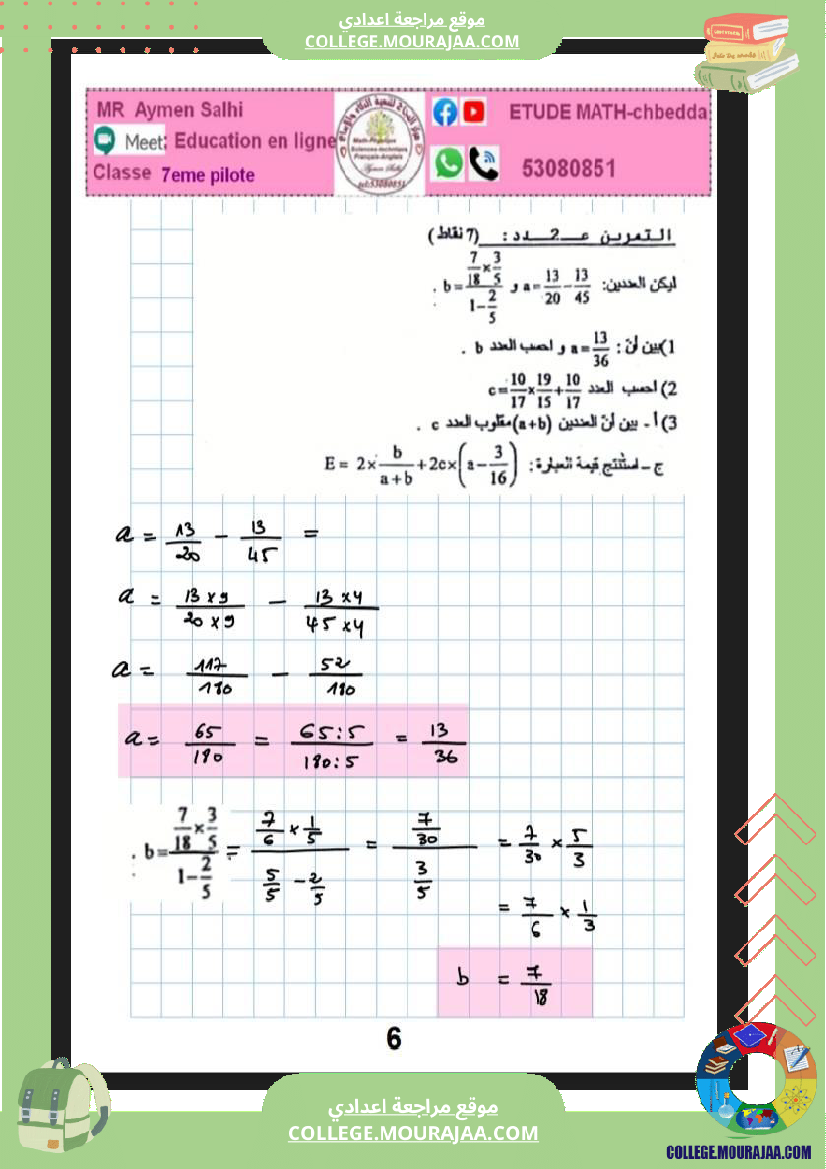 موقع مراجعة اعدادي
COLLEGE.MOURAJAA.COM
MR Aymen Salhi
Meet: Education en ligne
Classe 7eme pilote
Math-Physique
Sciences-technique
Français-Anglais
Aymen Salhi
tel:53080851
ETUDE MATH-chbedda
53080851
التمرين عـــ2ــدد : (7 نقاط)
ليكن العددين: a = 13/20 − 13/45 و b = (7/18 × 3/5)/(1 − 2/5) .
1) بين أنّ : a = 13/36 و احسب العدد b .
2) احسب العدد c = 10/17 × 19/15 + 10/17
3) أ - بين أنّ العددين (a+b) مقلوب العدد c .
ج – استنتج قيمة العبارة: E = 2× b/(a+b) + 2c×(a − 3/16)
a = 13/20 − 13/45 =
a = (13×9)/(20×9) − (13×4)/(45×4)
a = 117/180 − 52/180
a = 65/180 = (65:5)/(180:5) = 13/36
. b = (7/18 × 3/5)/(1 − 2/5) = (7/6 × 1/5)/(5/5 − 2/5) = (7/30)/(3/5) = 7/30 × 5/3
= 7/6 × 1/3
b = 7/18
6
موقع مراجعة اعدادي
COLLEGE.MOURAJAA.COM
COLLEGE.MOURAJAA.COM